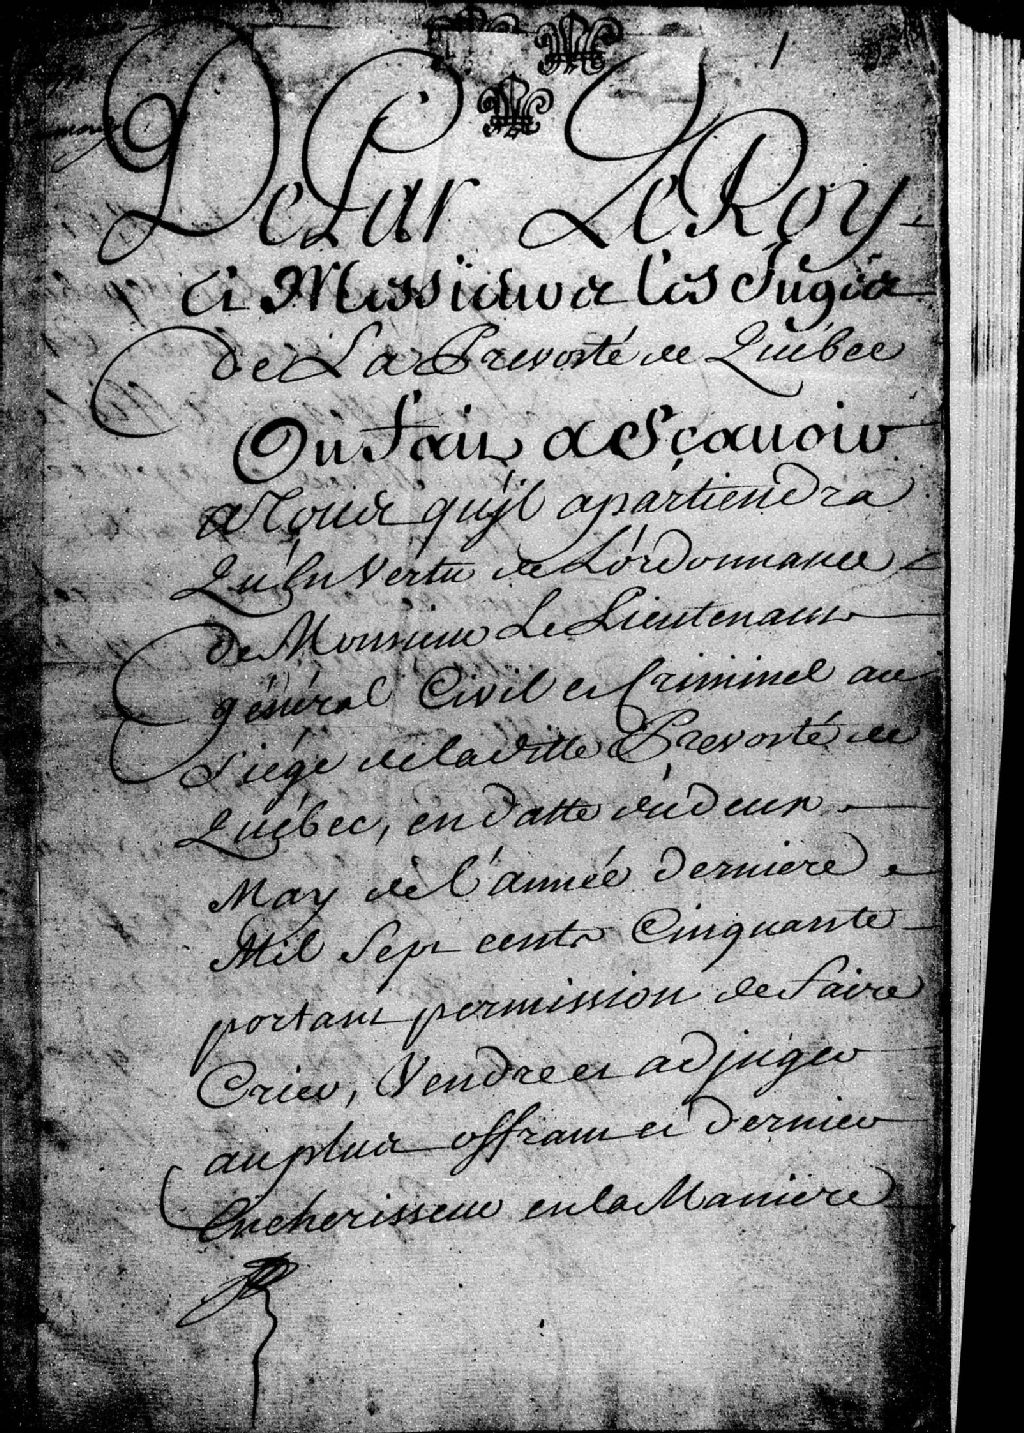 1
De Par Le Roy
et Messieurs les Juges
de La Prevosté de Québec
On fait a Sçavoir
a Tous quïl apartiendra
Qu'en Vertu de L'ordonnance
de Monsieur Le Lieutenant
général Civil et Criminel au
Siége de la Ville Prevosté de
Québec, en datte du deux
May de l'année derniere
Mil Sept cents Cinquante
portant permission de faire
Crier, Vendre et adjuger
au plus offrant et dernier
Encherisseur en la Maniere